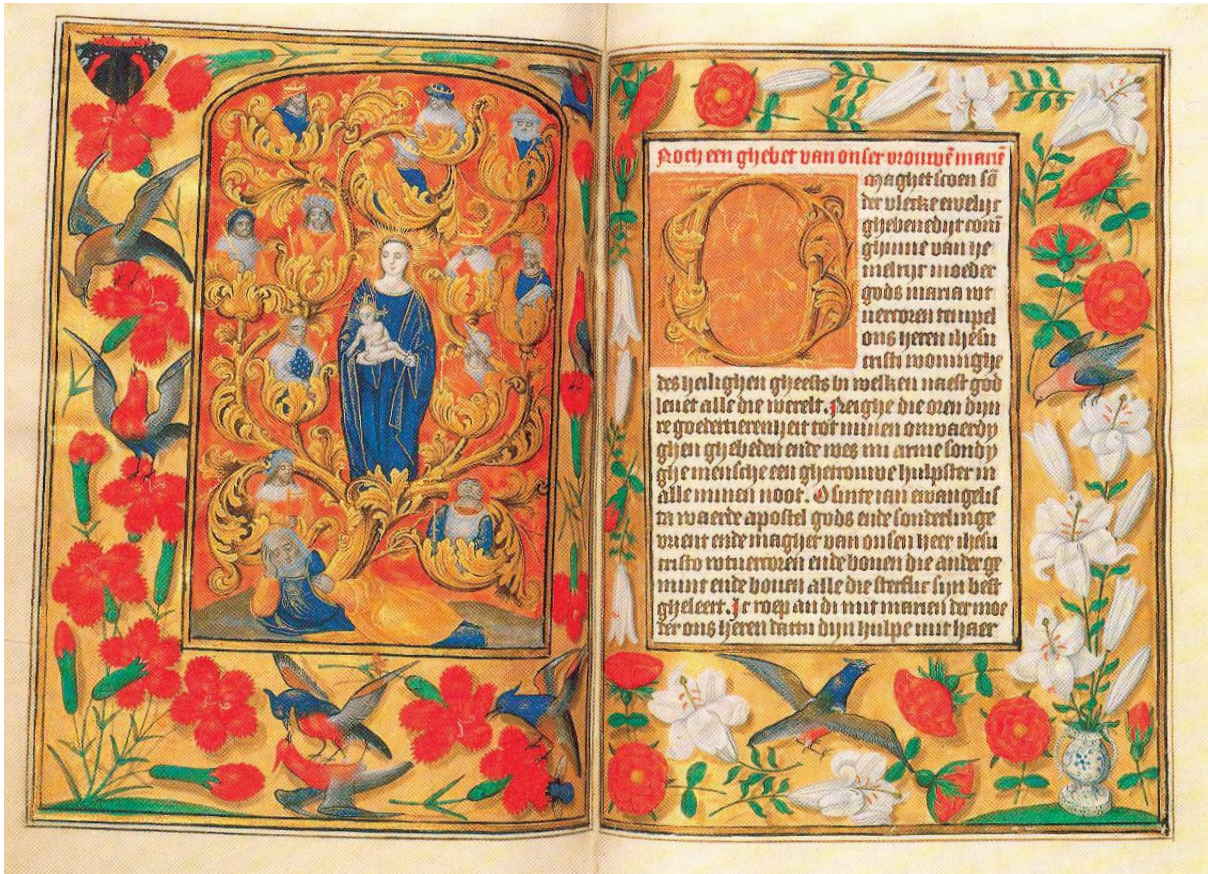 Noch een ghebet van onser vrouwē mariē
O maghet scoen sō
der vlecke ewelijc
ghebenedijt coni
ghinne van he
melrijc moeder
gods maria wt
uercoren tempel
ons heren ihesu
cristi woninghe
des heilighen gheests in welken naest god
leuet alle die werelt. Neighe die oren dijn
re goedertierenheit tot minen onwaerdy
ghen ghebeden ende wes mi arme sondy
ghe mensche een ghetrouwe hulpster in
alle minen noot. O sinte ian ewangelis
ta waerde apostel gods ende sonderlinge
vrient ende maghet van onsen heer ihesu
cristo wtuercoren ende bouen die ander ge
mint ende bouen alle die sterflic sijn best
gheleert. Ic roep an di mit marien der moe
der ons heren dattu dijn hulpe mit haer